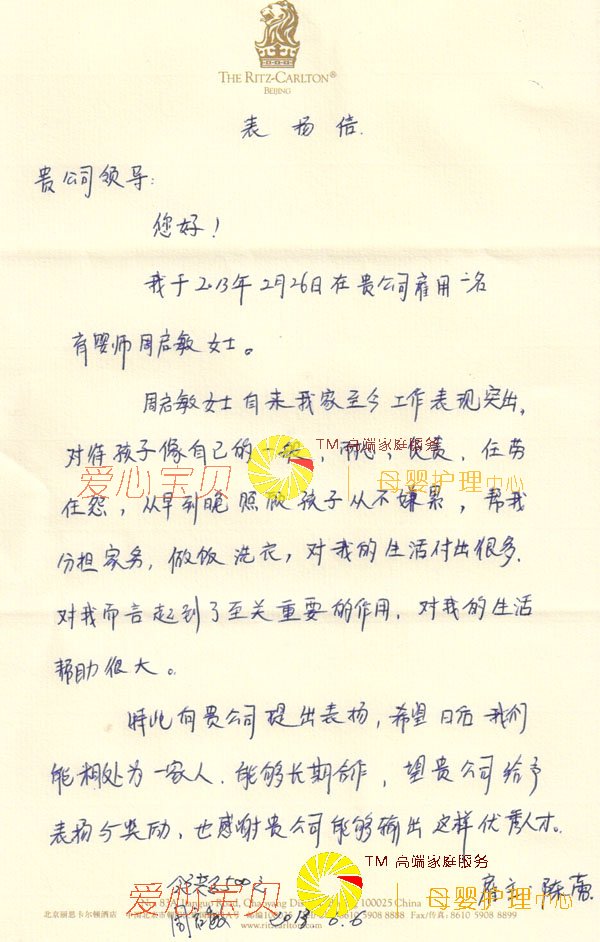 THE RITZ-CARLTON®
BEIJING
表扬信.
贵公司领导:
您好！
我于2013年2月26日在贵公司雇用一名
育婴师周启敏女士。
周启敏女士自来我家至今工作表现突出,
对待孩子像自己的一般，耐心，负责，任劳
TM 高端家庭服务
爱心宝贝 母婴护理中心
任怨，从早到晚照顾孩子从不嫌累，帮我
分担家务，做饭洗衣，对我的生活付出很多.
对我而言起到了至关重要的作用，对我的生活
帮助很大。
特此向贵公司提出表扬，希望日后我们
能相处为一家人.能够长期合作，望贵公司给予
表扬与奖励，也感谢贵公司能够输出这样优秀人才。
TM 高端家庭服务
500元
雇主
爱心宝贝 母婴护理中心
100025 China
周启敏 2013.6.6
北京丽思卡尔顿酒店 Fax/传真: 8610 5908 8899
www.ritzcarlton.com